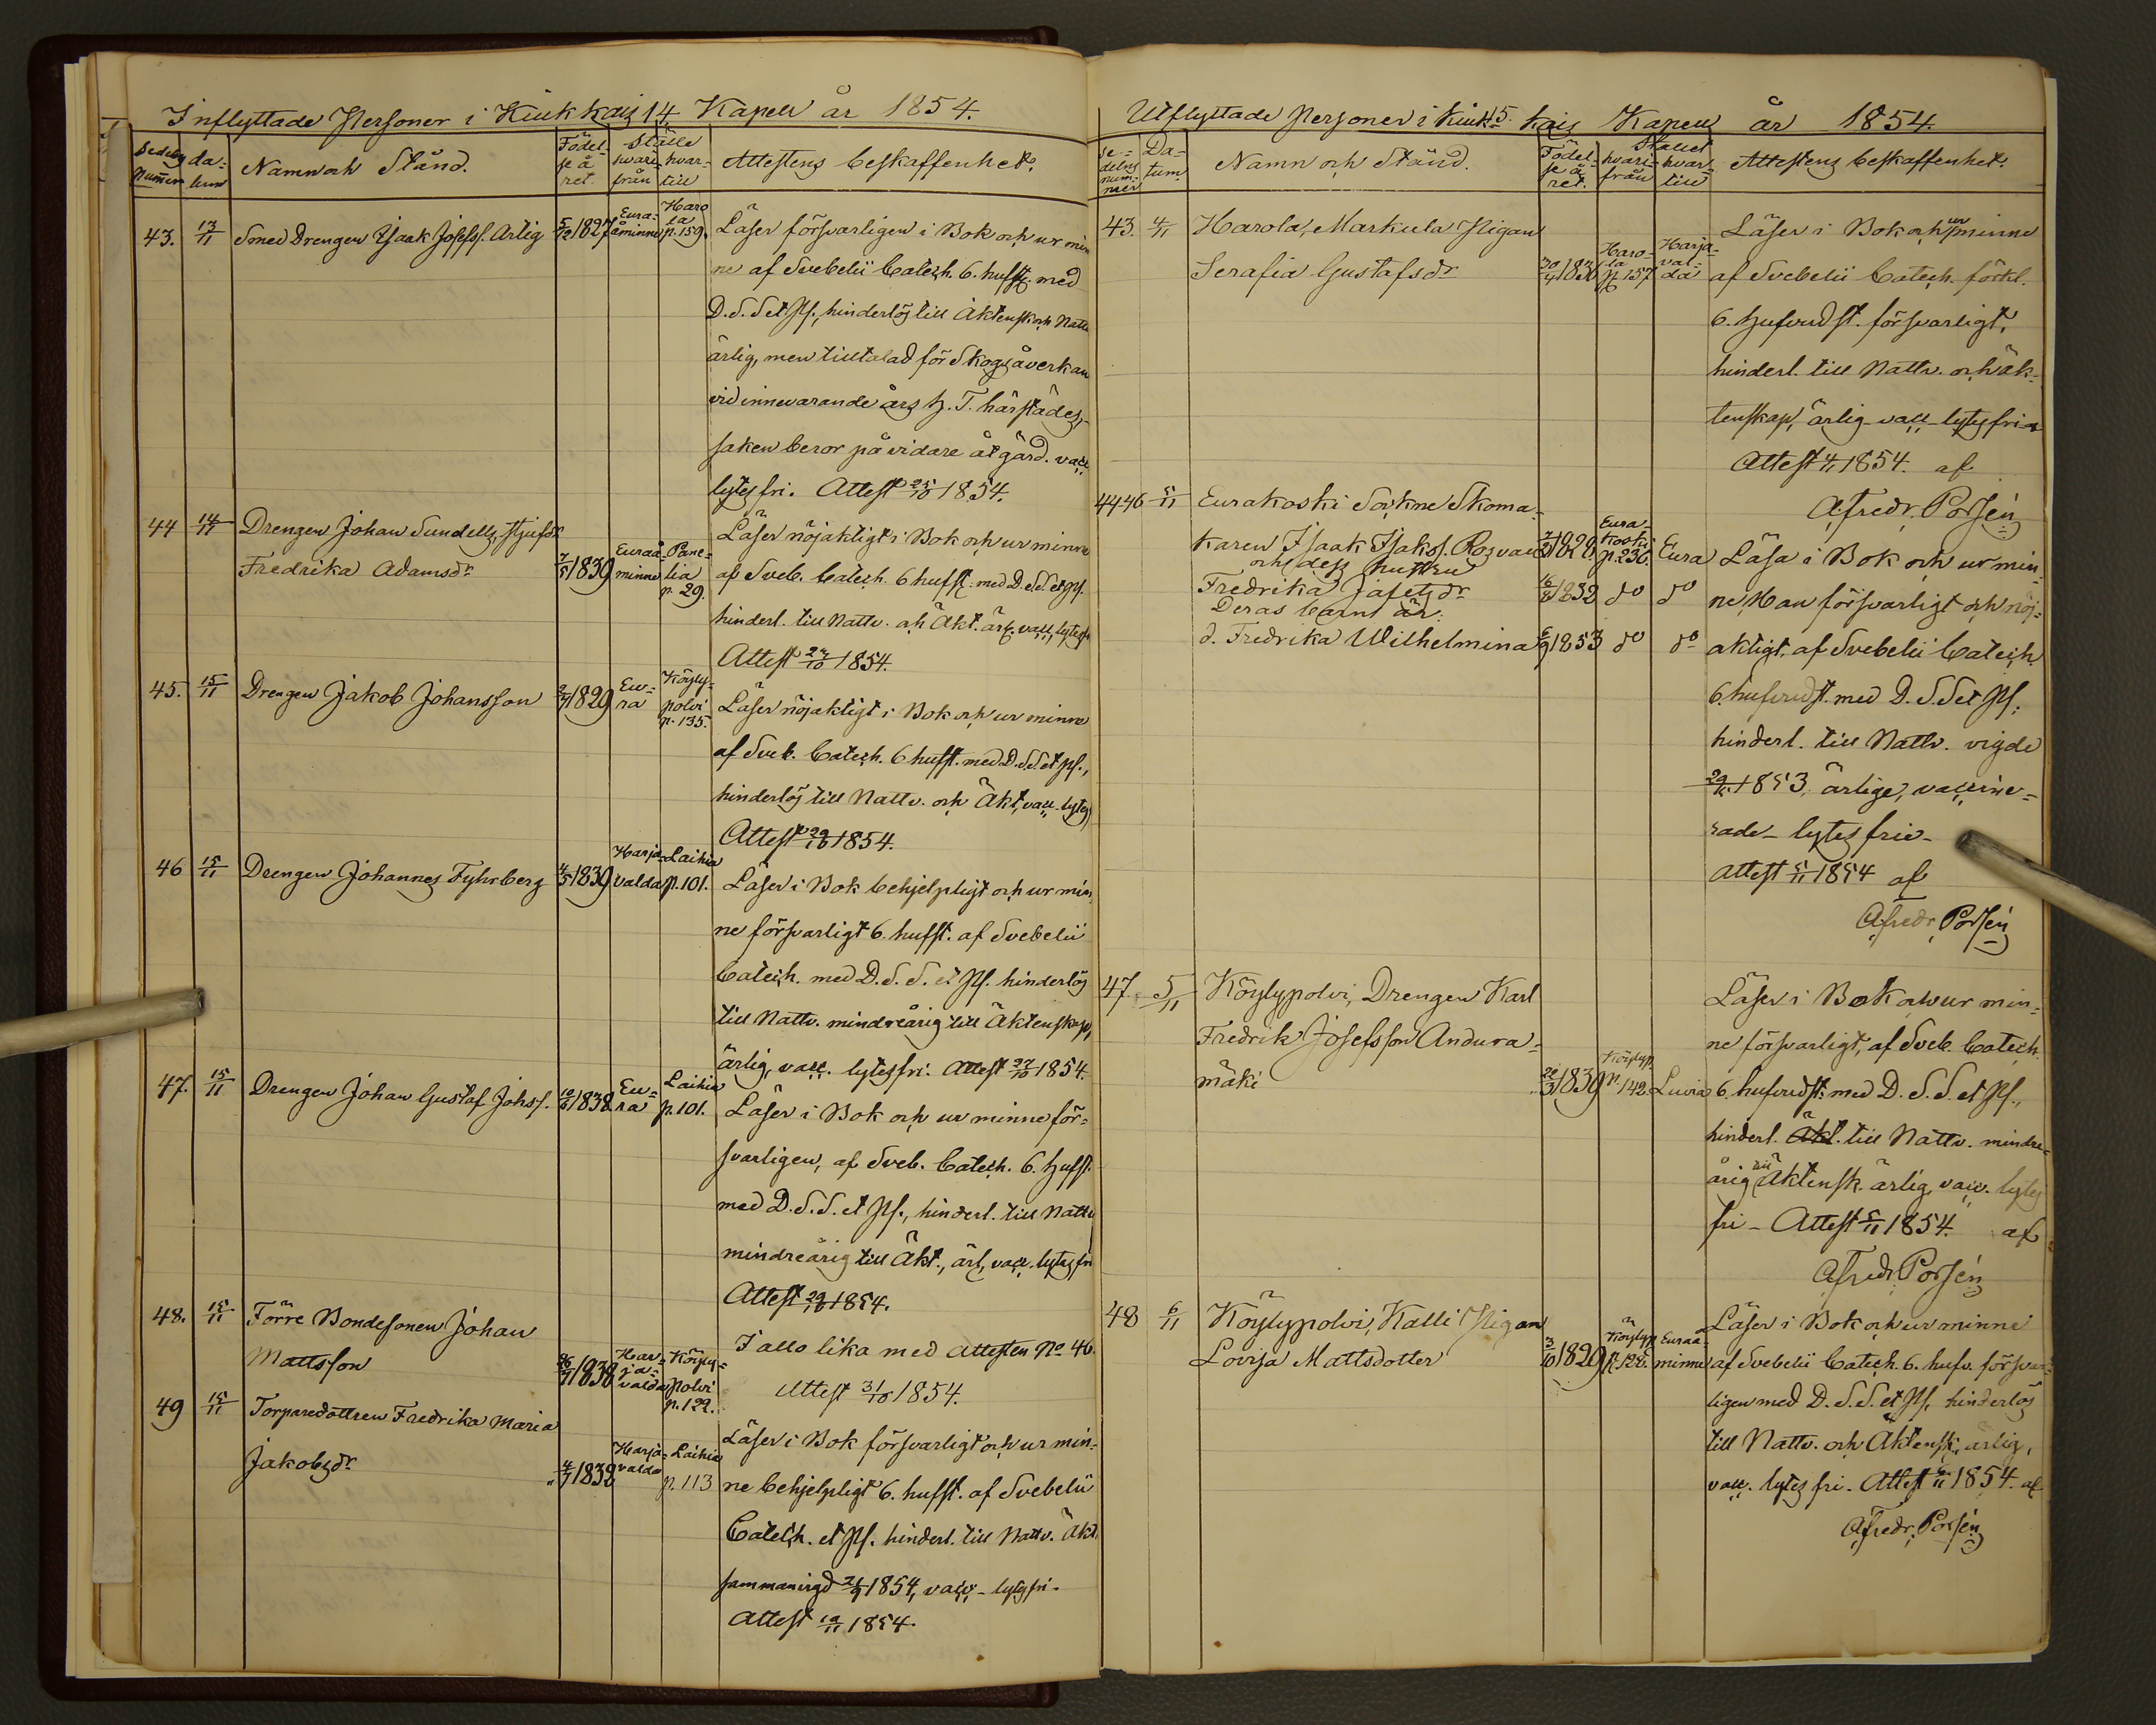 Inflyttade Personer i Kiukkais 14 Kapell år 1854.
Sedelns nummer
da-
tum
Namn och Stånd.
Födel-
se å
ret.
Ställe
hvari-
från
hvar-
till
Attestens beskaffenhet.
43.
13/11
Smed Drengen Isaak Josefss. Artig
5/12 1827
Eura-
åminne
Haro
la
p. 159.
Läser försvarligen i Bok och ur min
ne af Svebelii Catech. 6. hufst. med
D. S. S et Ps., hinderlös till Äktensk och Nattv
ärlig, men tilltalad för Skogsåverkan
vid innevarande års H. T. härstädes,
saken beror på vidare åtgärd. vacc.
lytes fri. Attest 25/10 1854.
44
14/11
Drengen Johan Sundells, Hustr
Fredrika Adamsdr
7/5 1839
Euraå
minne
Pane-
lia
p. 29.
Läser nöjaktigt i Bok och ur minne
af Sveb. Catech. 6 hufst. med D. S. S. et Ps.
hinderl. till Nattv. och Äkt. ärl. vacc. lytesfr
Attest 24/10 1854.
45.
15/11
Drengen Jakob Johansson
2/7 1829
Eu-
ra
Köyly-
polvi
p. 135.
Läser nöjaktigt i Bok och ur minne
af Sveb. Catech. 6 hufst. med D. S. S. et Ps.,
hinderlös till Nattv. och Äkt, vacc. lytes)
Attest 29/10 1854.
46
15/11
Drengen Johannes Fyhrberg
4/5 1839
Harja-
valda
Laihia
p. 101.
Läser i Bok behjelpligt och ur min
ne försvarligt 6. hufst. af Svebelii
Catech. med D. S. S. et Ps. hinderlös
till Nattv. mindreårig till Äktenskap,
ärlig, vacc. lytesfri. Attest 27/10 1854.
47.
15/11
Drengen Johan Gustaf Johss.
10/6 1838
Eu-
ra
Laihia
p. 101.
Läser i Bok och ur minne för-
svarligen, af Sveb. Catech. 6. hufst.
med D. S. S. et Ps., hinderl. till Nattv
mindreårig till Äkt., ärl, vacc. lytes fri
Attest 29/10 1854.
48.
15/11
Förre Bondesonen Johan
Mattsson
26/7 1838
Har-
ja-
valda
Köyly-
polvi
p. 122.
I allo lika med Attesten No 46.
Attest 31/10 1854.
49
15/11
Torparedottren Fredrika Maria
Jakobsdr
4/7 1832
Harja-
valda
Laihia
p. 113
Läser i Bok försvarligt och ur min-
ne behjelpligt 6. hufst. af Svebelii
Catech. et Ps. hinderl. till Nattv. Äkt.
sammanvigd 21/9 1854, vacc. - lytes fri -
Attest 12/11 1854.
Utflyttade Personer i Kiuk- 15. kais Kapell år 1854.
Se-
delns
num-
mer
Da-
tum
Namn och Stånd.
Födel-
se å
ret.
Stället
hvari-
från
hvar-
till
Attestens beskaffenhet.
43.
4/11
Harola, Markula Pigan
Serafia Gustafsdr
30/4 1836
Haro-
la
p. 157
Harja-
val-
da
Läser i Bok och ur minne
af Svebelii Catech. förkl.
6. hufvudst. försvarligt,
hinderl. till Nattv. och äk-
tenskap, ärlig - vacc - lytes fri -
Attest 4/11 1854. af
A. Fredr. Porsén
44-46
5/11
Eurakoski Sockne Skoma-
karen Isaak Isakss. Rosvall
och dess hustru
Fredrika Jafetsdr
Deras barn är:
d. Fredrika Wilhelmina
1828
Eura-
koski
p. 236.
Eura
16/8 1832 do do
6/9 1853 do do
Läsa i Bok och ur min-
ne, Han försvarligt och nöj-
aktigt, af Svebelii Catech
6. hufvudst. med D. S. S et Ps.,
hinderl. till Nattv. vigde
1853, ärlige, vaccine-
rade - lytes frie -
Attest 5/11 1854 af
A. Fredr. Porsén
47.
5/11
Köylypolvi, Drengen Karl
Fredrik Josefsson Andura-
mäki
26/3 1839
Köylyp.
p. 142.
Luvia
Läser i Bok och ur min-
ne försvarligt, af Sveb. Catech.
6. hufvudst. med D. S. S. et Ps.,
hinderl. Äkt. till Nattv. mindre-
årig till Äktensk. ärlig, vacc. lytes
fri - Attest 5/11 1854. af
A. Fredr. Porsén
48
6/11
Köylypolvi, Kalli Pigan
Lovisa Mattsdotter
3/10 1829
Köylyp.
p. 128.
Euraå-
minne
Läser i Bok och ur minne
af Svebelii Catech. 6. hufv. försvar-
ligen med D. S. S. et Ps, hinderlös
till Nattv. och Äktensk. ärlig,
vacc. lytes fri. Attest 6/11 1854. af
A. Fredr. Porsén